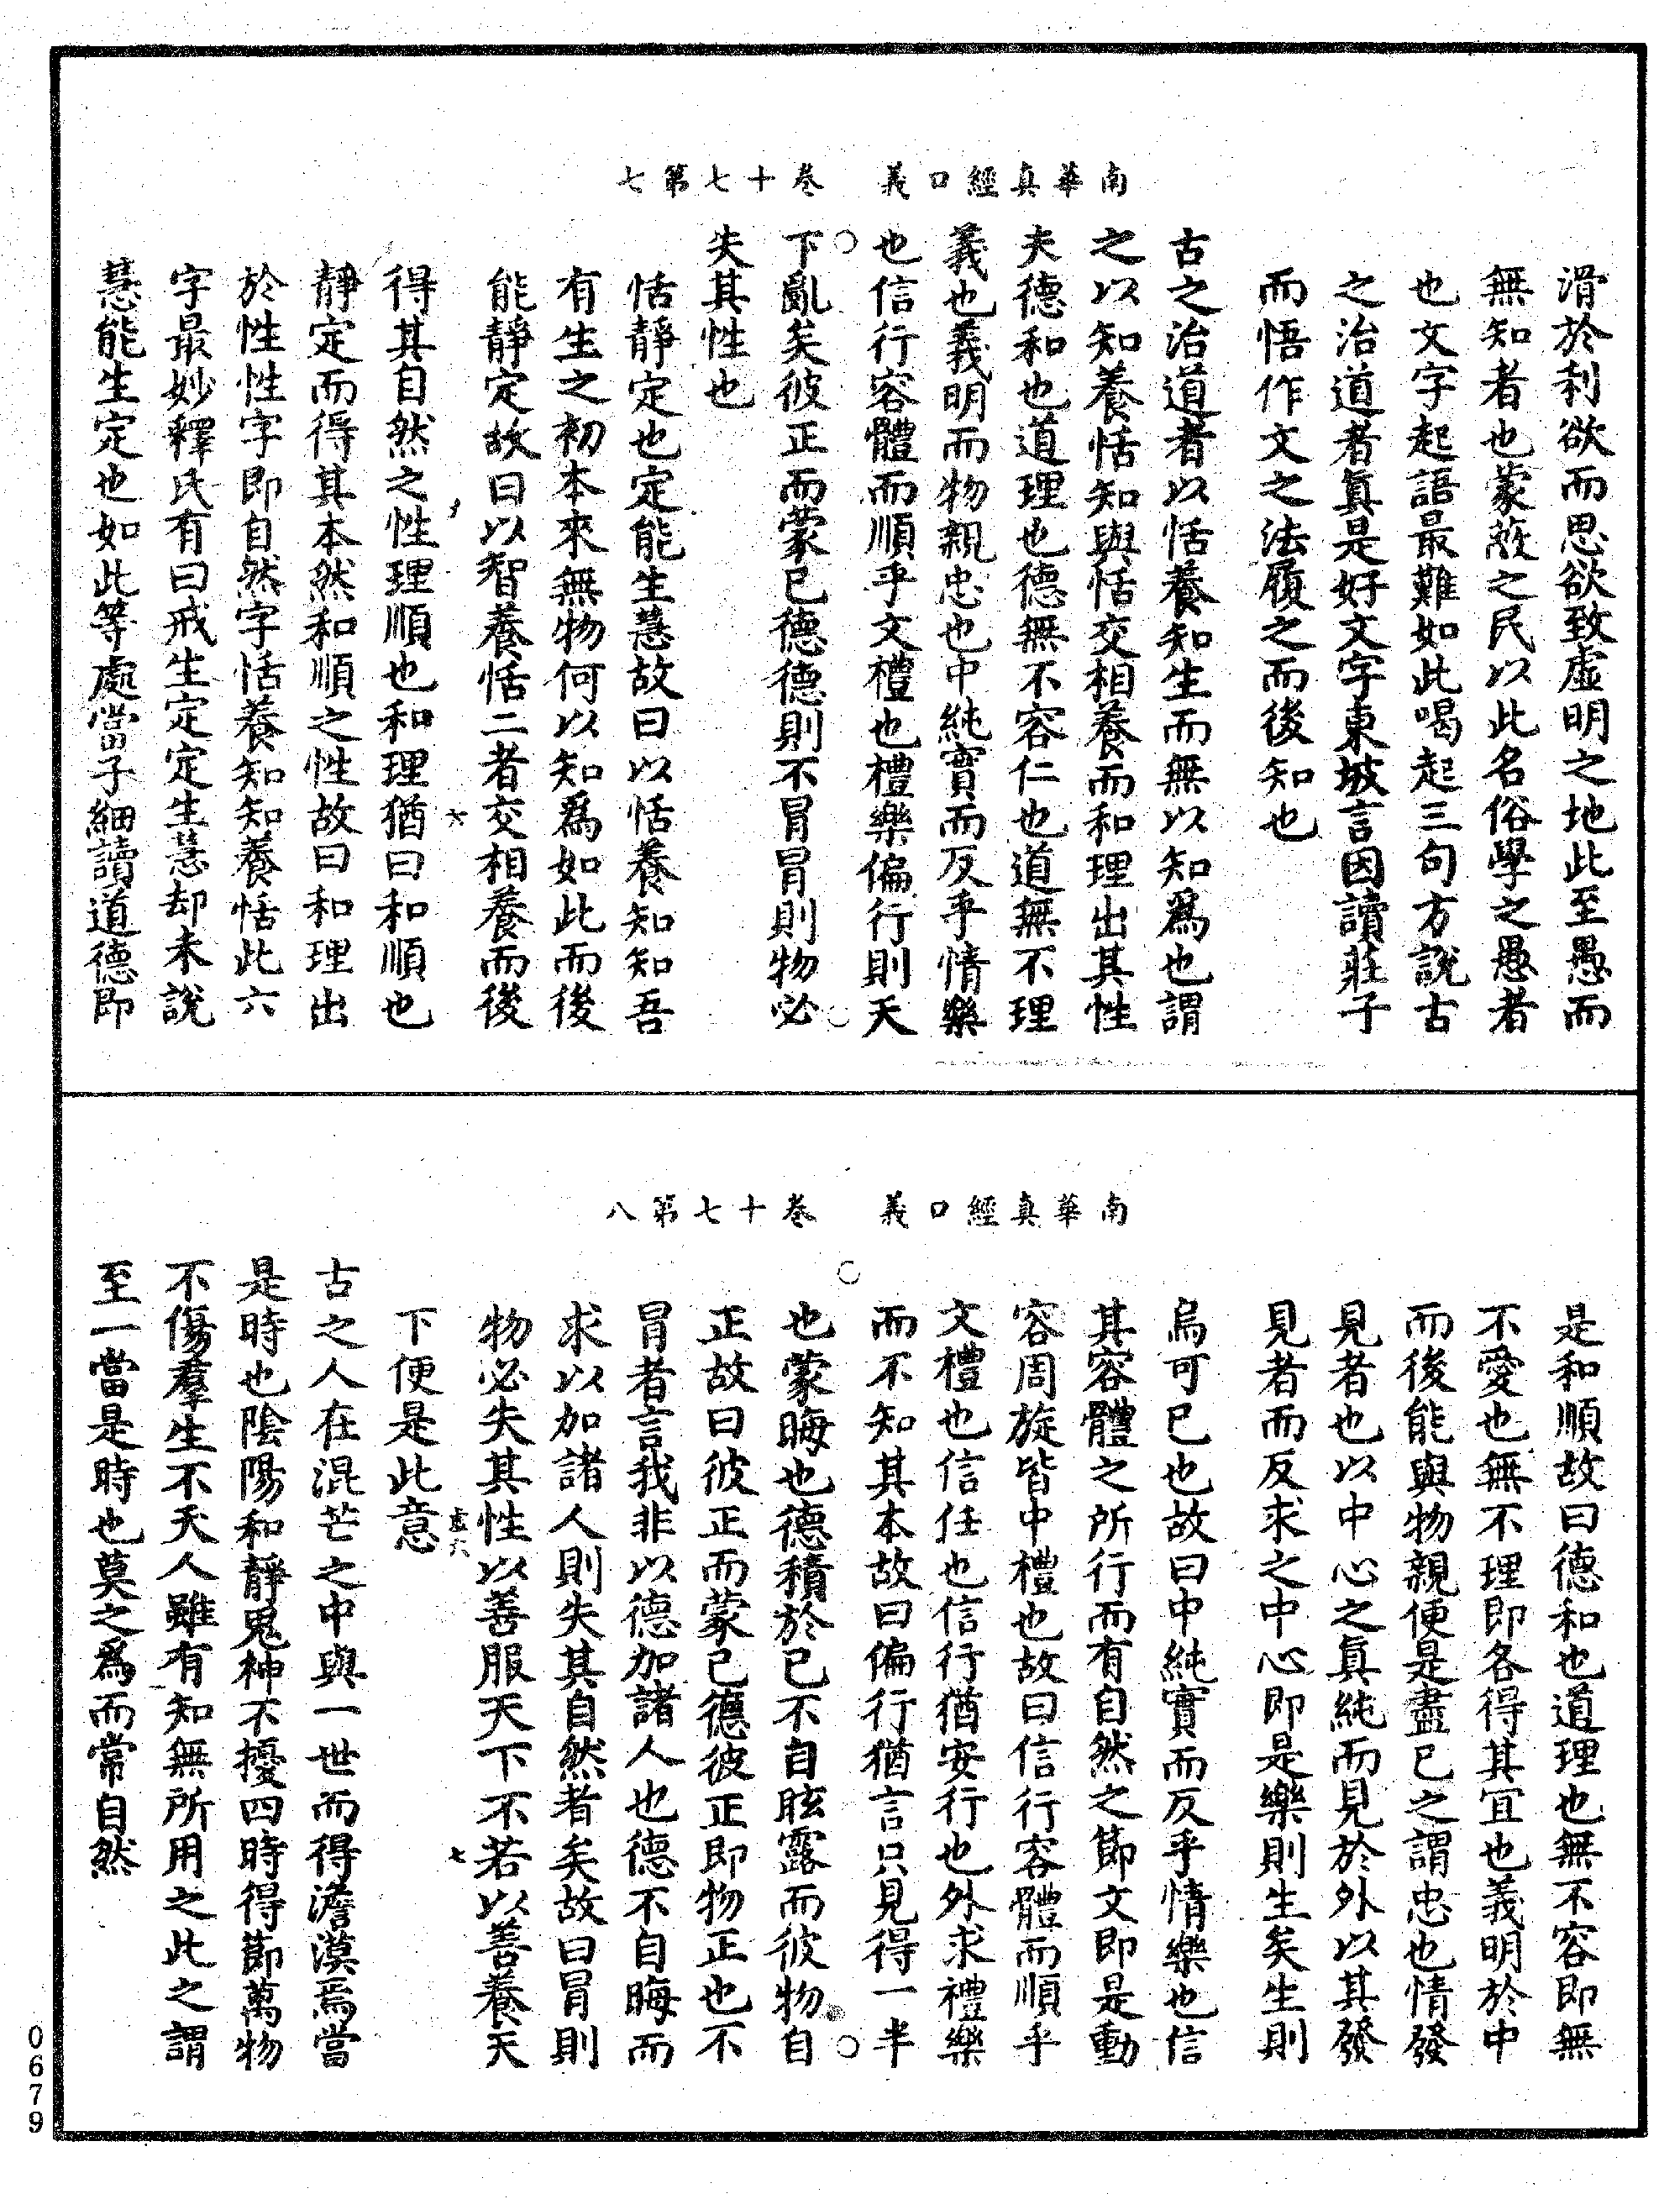 南華真經口義　卷十七第七
滑於利欲而思欲致虛明之地此至愚而
無知者也蒙蔽之民以此名俗學之愚者
也文字起語最難如此喝起三句方說古
之治道者眞是好文字東坡言因讀莊子
而悟作文之法履之而後知也
古之治道者以恬養知生而無以知爲也謂
之以知養恬知與恬交相養而和理出其性
夫德和也道理也德無不容仁也道無不理
義也義明而物親忠也中純實而反乎情樂
也信行容體而順乎文禮也禮樂偏行則天
下亂矣彼正而蒙已德德則不冒冒則物必
失其性也
恬靜定也定能生慧故曰以恬養知知吾
有生之初本來無物何以知爲如此而後
能靜定故曰以智養恬二者交相養而後
六
得其自然之性理順也和理猶曰和順也
靜定而得其本然和順之性故曰和理出
於性性字即自然字恬養知知養恬此六
字最妙釋氏有曰戒生定定生慧却未說
慧能生定也如此等處當子細讀道德即
南華真經口義　卷十七第八
是和順故曰德和也道理也無不容即無
不愛也無不理即各得其宜也義明於中
而後能與物親便是盡已之謂忠也情發
見者也以中心之眞純而見於外以其發
見者而反求之中心即是樂則生矣生則
烏可已也故曰中純實而反乎情樂也信
其容體之所行而有自然之節文即是動
容周旋皆中禮也故曰信行容體而順乎
文禮也信任也信行猶安行也外求禮樂
而不知其本故曰偏行猶言只見得一半
也蒙晦也德積於已不自眩露而彼物自
正故曰彼正而蒙已德彼正即物正也不
冒者言我非以德加諸人也德不自晦而
求以加諸人則失其自然者矣故曰冒則
物必失其性以善服天下不若以善養天
七
下便是此意
古之人在混芒之中與一世而得澹漠焉當
是時也陰陽和靜鬼神不擾四時得節萬物
不傷羣生不夭人雖有知無所用之此之謂
至一當是時也莫之爲而常自然
0679